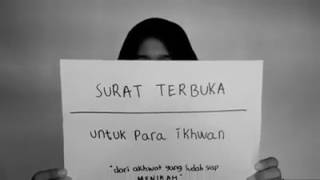 SURAT TERBUKA
untuk Para ikhwan
"dari akhwat yang sudah siap
MENIKAH"